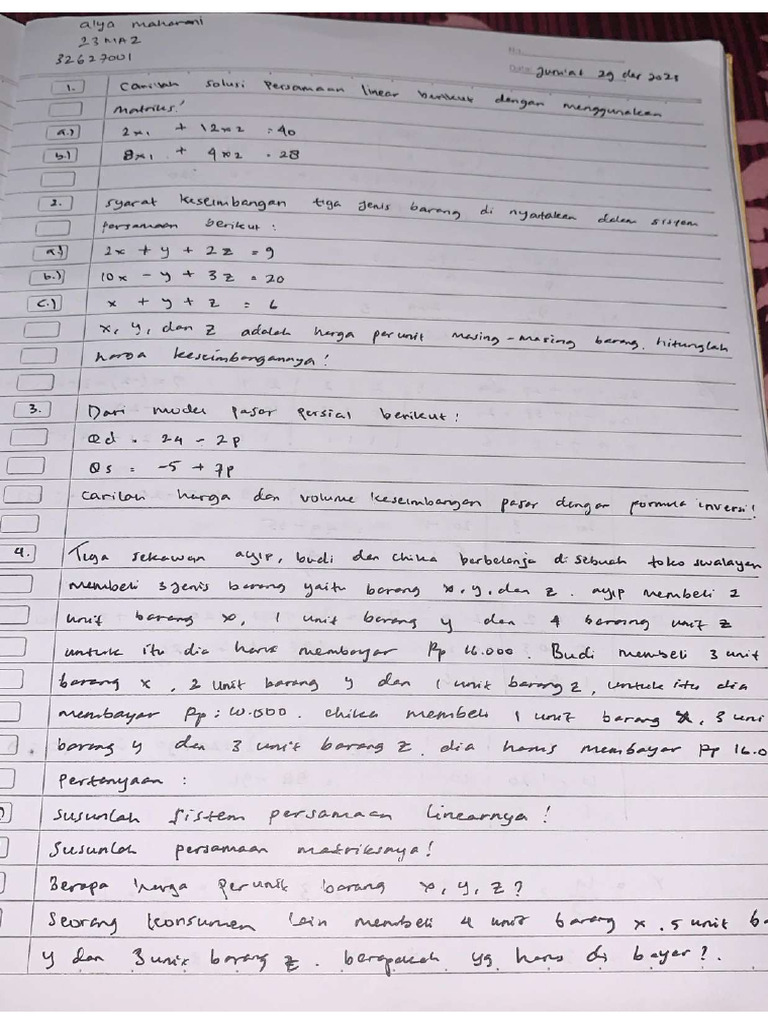 alya maharani
23 MA2
32627001
No.
Date. Jumiat 29 des 2023
1. Carilah solusi Persamaan linear berikut dengan menggunakan
Matriks!
a.) 2x1 + 12x2 = 40
b.) 8x1 + 4x2 = 28
2. Syarat keseimbangan tiga jenis barang di nyatakan dalam sistem
persamaan berikut:
a.) 2x + y + 2z = 9
b.) 10x - y + 3z = 20
c.) x + y + z = 6
x, y, dan z adalah harga per unit masing-masing barang. hitunglah
harga keseimbangannya!
3. Dari model pasar persial berikut:
Qd = 24 - 2p
Qs = -5 + 7p
carilah harga dan volume keseimbangan pasar dengan formula inversi!
4. Tiga sekawan ayip, budi dan chika berbelanja di sebuah toko swalayan
membeli 3 jenis barang yaitu barang x, y, dan z. ayip membeli 2
unit barang x, 1 unit barang y dan 4 barang unit z
untuk itu dia harus membayar Rp 16.000. Budi membeli 3 unit
barang x, 2 unit barang y dan 1 unit barang z, untuk itu dia
membayar Rp: 10.500. chika membeli 1 unit barang x, 3 uni
barang y dan 3 unit barang z. dia harus membayar Rp 16.0
Pertanyaan :
Susunlah sistem persamaan linearnya!
Susunlah persamaan matriksnya!
Berapa harga per unit barang x, y, z?
Seorang konsumen lain membeli 4 unit barang x, 5 unit ba
y dan 3 unit barang z. berapakah yg harus di bayar?.